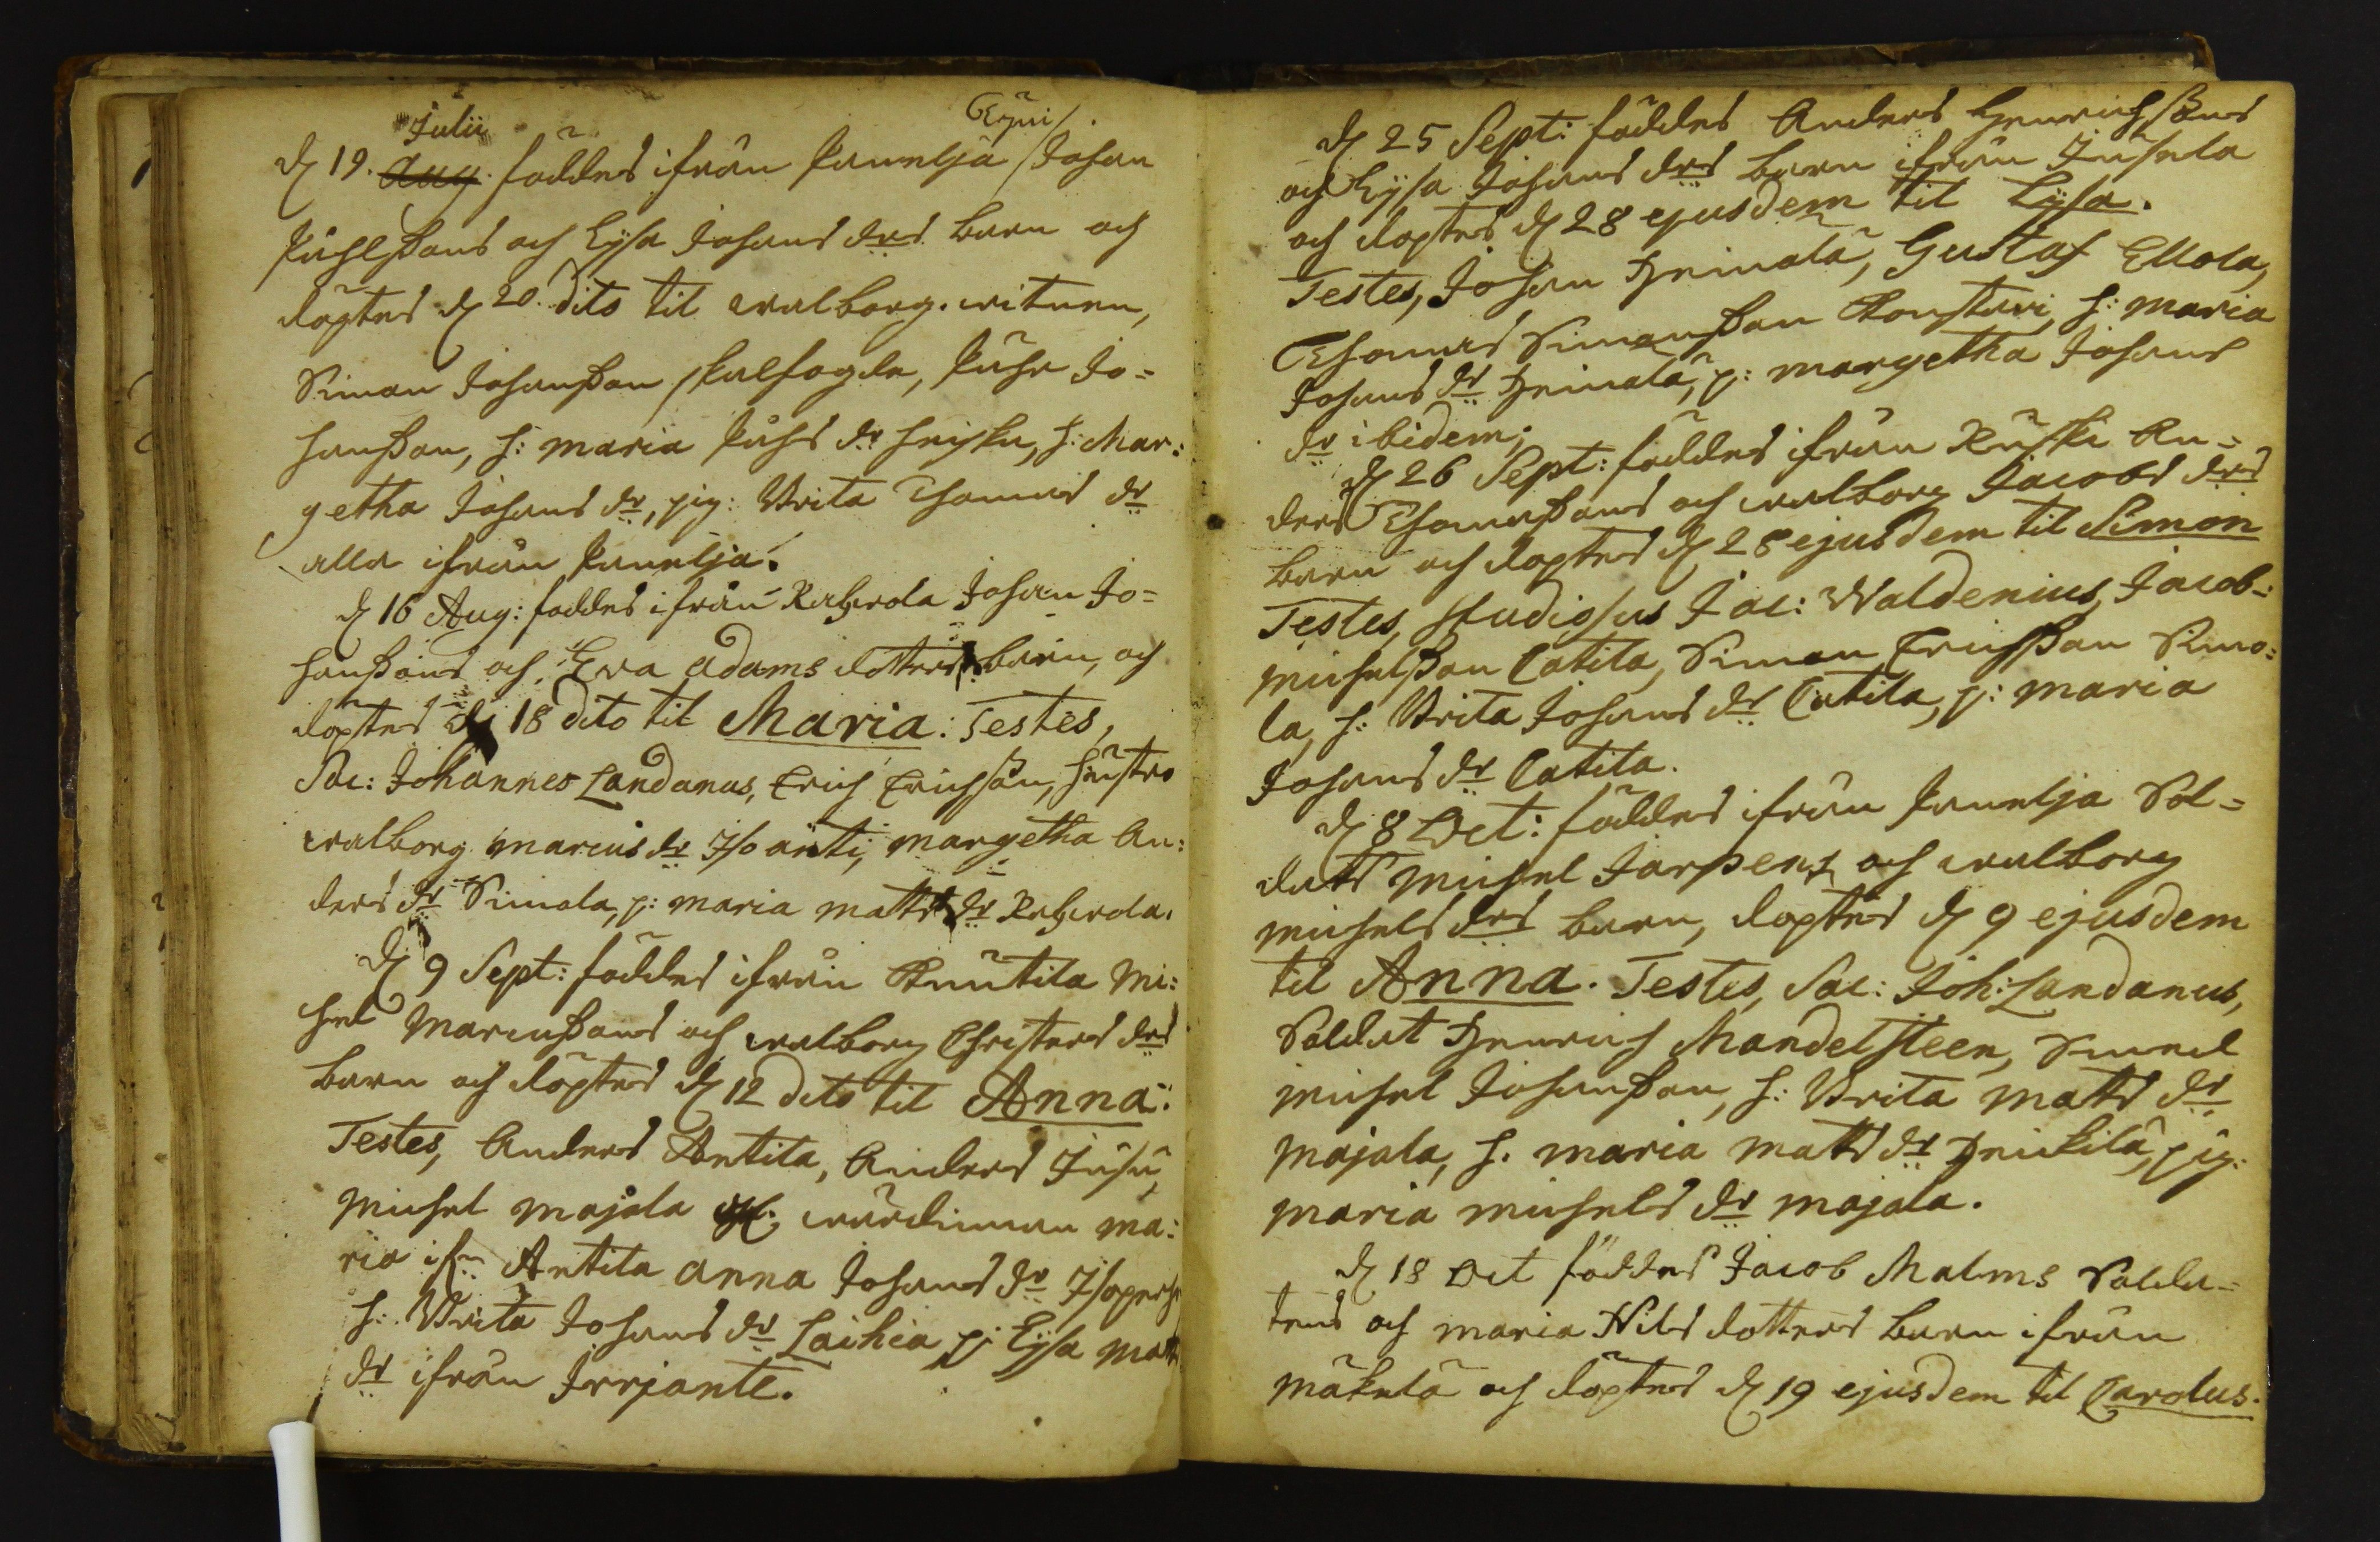 Julii
Eqvi/.
d 19. Aug. föddes ifrån Pannelja /Johan
Påhlßons och Lysa Johans drs barn och
döptes d 20. dito til walborg. witnen,
Simon Johanßon skalfogde, Påhr Jo=
hanßon, h: maria Påhls dr heisku, h: Mar:
getha Johans dr, pig: Brita Thomas dr
alla ifrån Pannelja.
d 16 Aug: föddes ifrån Raherola Johan Jo=
hanßons och Eva Adams dotters barn, och
döptes d 18 dito til Maria: Testes,
Sac: Johannes Landanus, Erich Erichson, hustro
walborg marcus dr Iso anti, margetha An:
ders dr Simola, p: maria matts dr Raherola.
d 9 Sept: föddes ifrån Knutila Mi:
hel Marcußons och walborg Christers drs
barn och döptes d 12 dito til Anna:
Testes, Anders Antila, Anders Jusu,
Michel majala wärdinnan ma:
ria ifn Antila anna Johans dr
h: Brita Johans dr Laihia p: Lysa Matts
dr ifrån Irrjante.
d 25 Sept: föddes Anders Henrichsßons
och Lysa Johans drs barn ifrån Jusela
och döptes d 28 ejusdem til Lysa.
Testes, Johan Heimola, Gustaf Ellola,
Thomas Simonßon Konstari, h: maria
Johans dr Heimala, p: margetha Johans
dr ibidem;
d 26 Sept: föddes ifrån Ruska An=
ders Thomaßons och walborg Jacobs drs
barn och döptes d 28 ejusdem til Simon
Testes, studiosus Jac: Waldenius, Jacob:
Michelßon Catila, Simon Erichßon Simo:
la, h: Brita Johans dr Catila, p: maria
Johans dr Catila.
d 8 Oct: föddes ifrån Pannelja Sol=
dats Michel Jarpens och walborg
michels drs barn, döptes d 9 ejusdem
til Anna. Testes, Sac: Joh: Landanus,
Soldat Henrich Mandelsteen, Smed
michel Johanßon, h: Brita Matts dr
Majala, h. maria matts dr Heickila, pig:
maria michels dr majala.
d 18 Oct föddes Jacob Malms Solda=
tens och maria Nils dotters barn ifrån
Mäkelä och döptes d 19 ejusdem til Carolus.